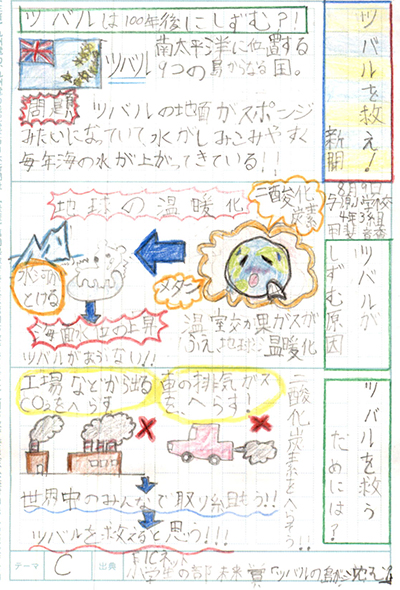 ツバルを救え!
新聞
8月9日
小学校
4年3組
ツバルは100年後にしずむ?!
ツバル
南太平洋に位置する
9つの島からなる国。
問題
ツバルの地面がスポンジ
みたいになっていて水がしみこみやすく
毎年海の水が上がってきている!!
ツバルが
しずむ原因
地球の温暖化
二酸化
炭素
メタン
氷河が
とける
海面の上昇
ツバルがあぶない!!
温室効果ガスが
ふえ地球温暖化
ツバルを救う
ためには?
二酸化炭素をへらそう!!
工場などから出る
CO2をへらす
車の排気ガス
を、へらす!
世界中のみんなで取り組もう!!
ツバルを救えると思う!!!
テーマ
C
出典
小学生の部